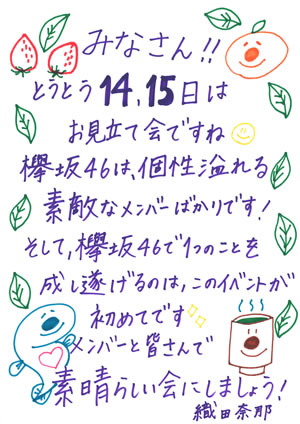 みなさん!!
とうとう14,15日は
お見立て会ですね
欅坂46は、個性溢れる
素敵なメンバーばかりです!
そして、欅坂46で1つのことを
成し遂げるのは、このイベントが
初めてです
メンバーと皆さんで
素晴らしい会にしましょう!
織田奈那